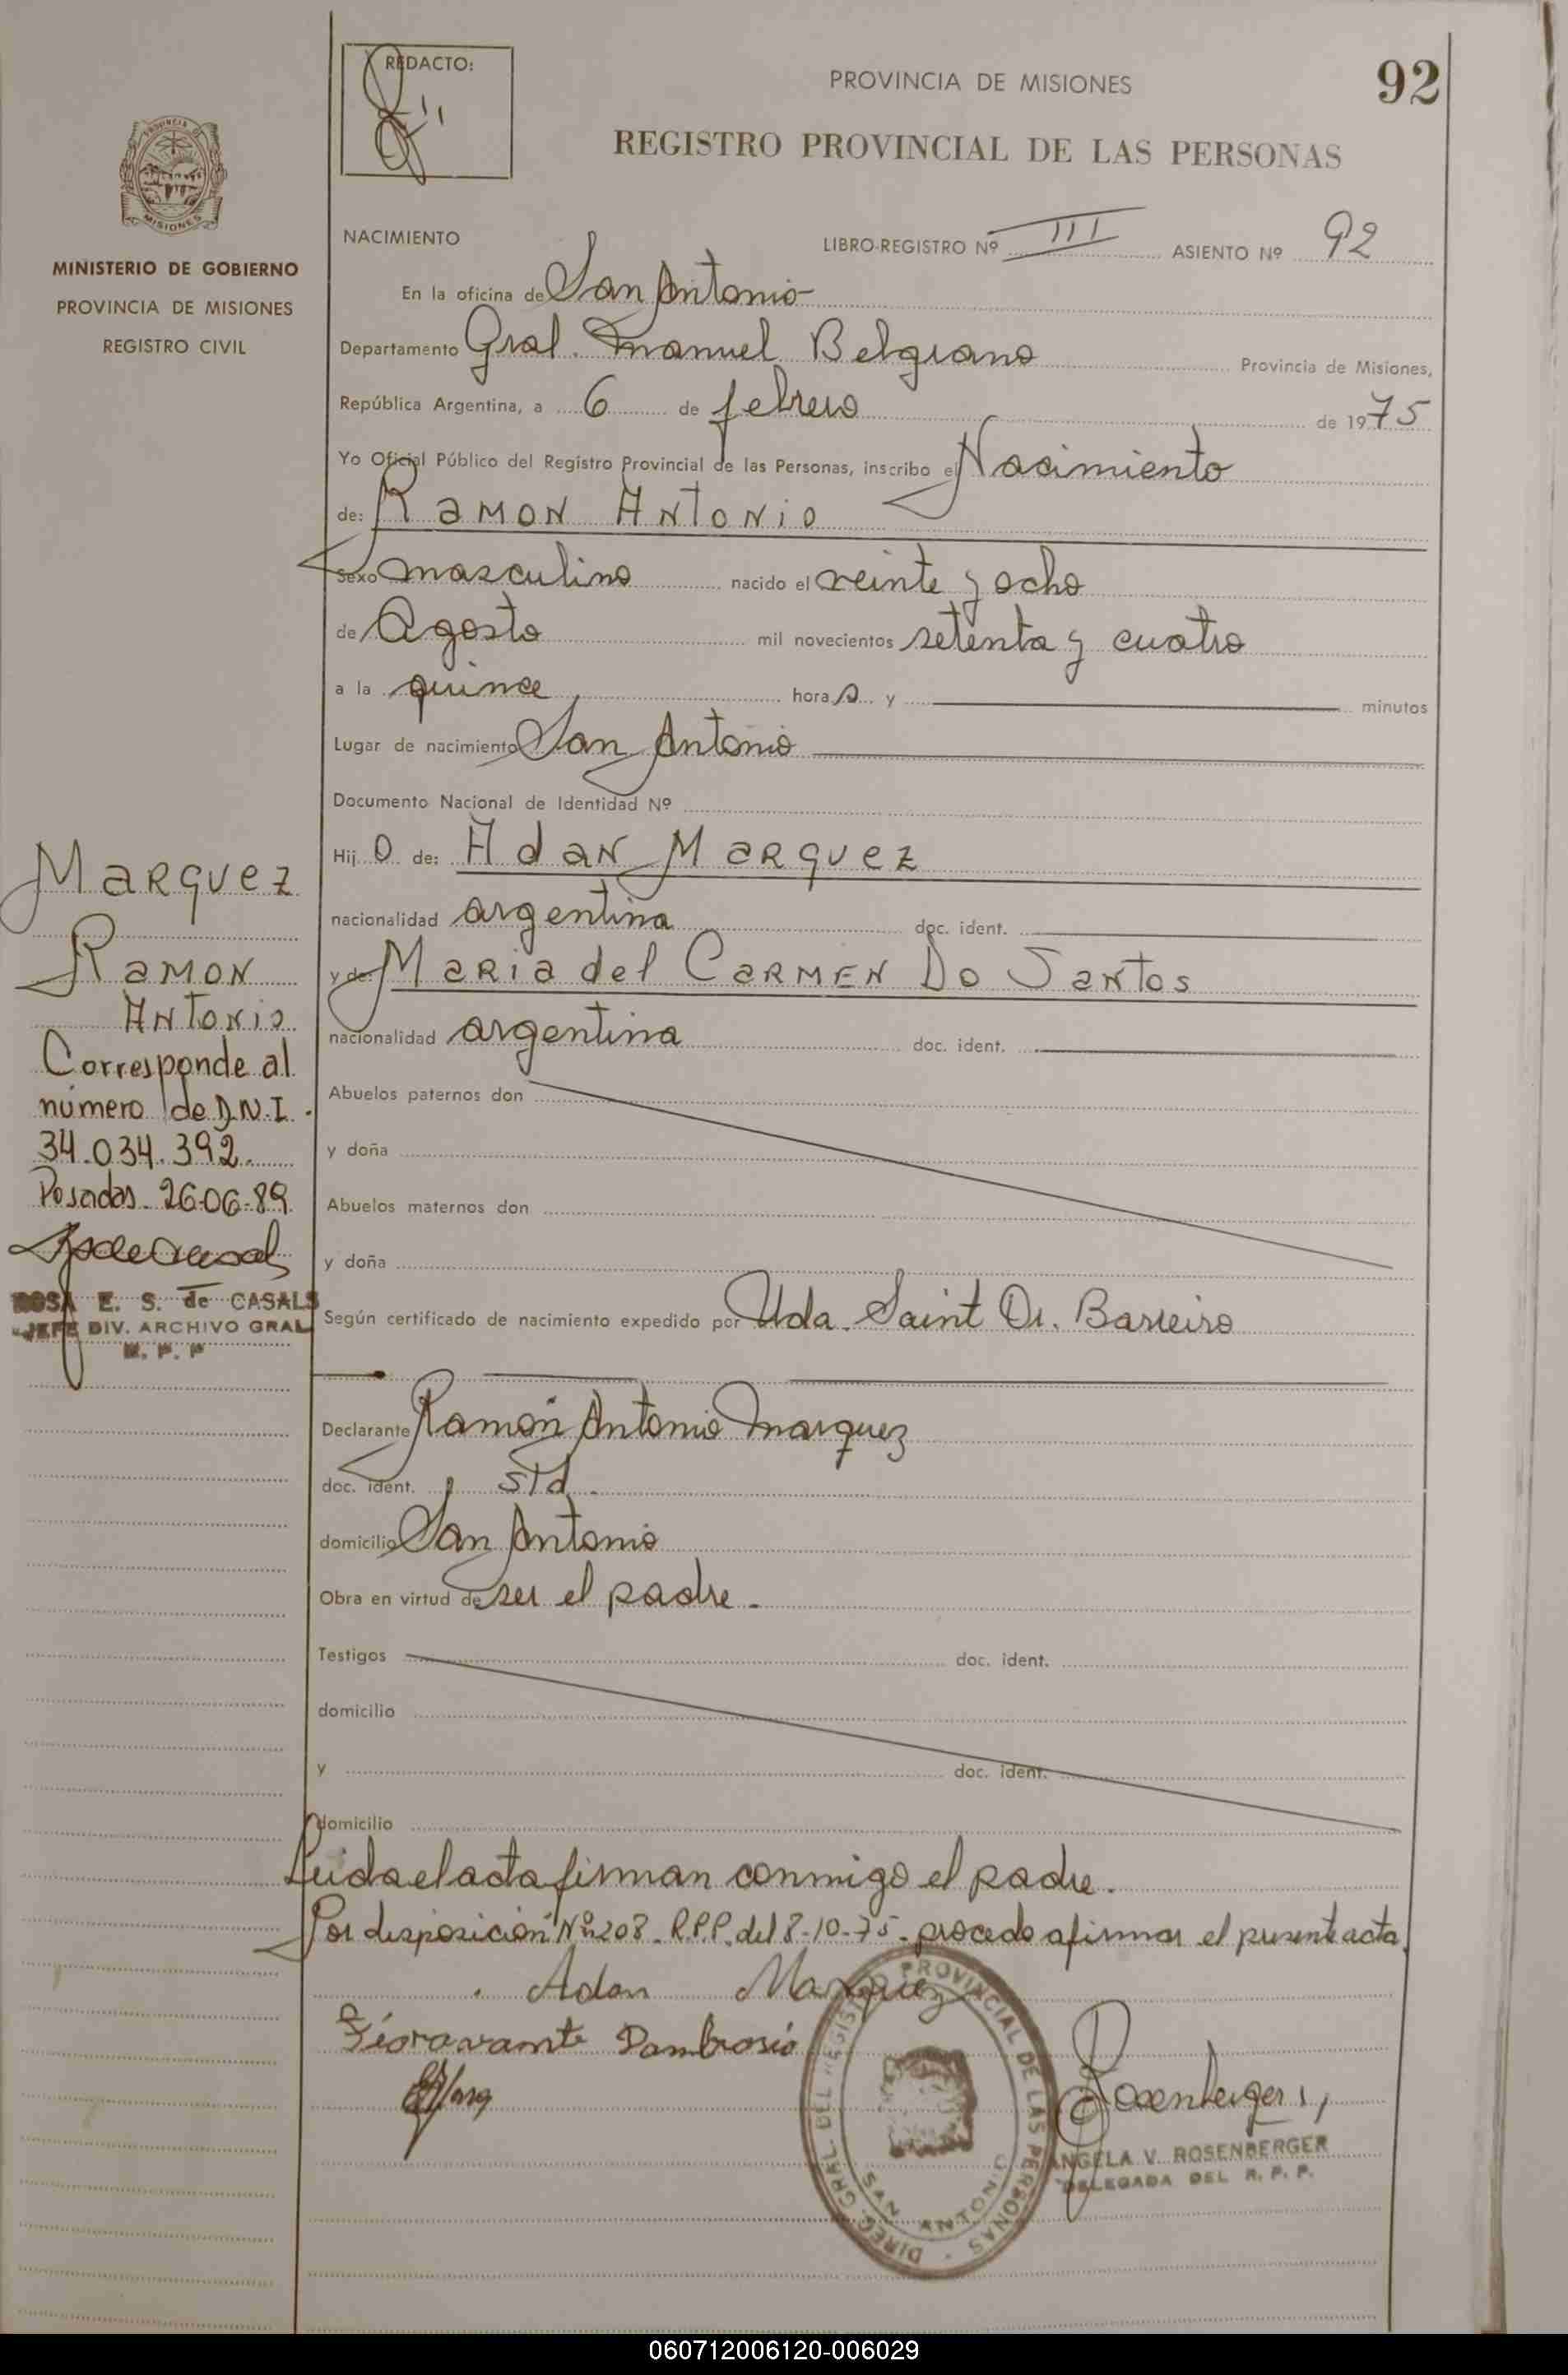 REDACTO:
PROVINCIA DE MISIONES
92
REGISTRO PROVINCIAL DE LAS PERSONAS
PROVINCIA DE
MISIONES
MINISTERIO DE GOBIERNO
PROVINCIA DE MISIONES
REGISTRO CIVIL
NACIMIENTO LIBRO-REGISTRO Nº III ASIENTO Nº 92
En la oficina de San Antonio
Departamento Gral. Manuel Belgrano Provincia de Misiones,
República Argentina, a 6 de febrero de 1975
Yo Oficial Público del Registro Provincial de las Personas, inscribo el Nacimiento
de: RAMON ANTONIO
Sexo masculino nacido el veinte y ocho
de Agosto mil novecientos setenta y cuatro
a la quince horas y minutos
Lugar de nacimiento San Antonio
Documento Nacional de Identidad Nº
Hijo de: Adan Marquez
nacionalidad argentina doc. ident.
y de: Maria del Carmen Do Santos
nacionalidad argentina doc. ident.
Abuelos paternos don
y doña
Abuelos maternos don
y doña
Según certificado de nacimiento expedido por Uda. Saint Dr. Barreiro
Declarante Ramon Antonio Marquez
doc. ident. s/d.
domicilio San Antonio
Obra en virtud de ser el padre.
Testigos doc. ident.
domicilio
y doc. ident.
domicilio
Leida el acta firman conmigo el padre.
Por disposición Nº 208. R.P.P. del 8-10-75. procedo a firmar el presente acta.
Adan Marquez
Fioravante Dambrosio
Rosenberger
ANGELA V. ROSENBERGER
DELEGADA DEL R. P. P.
DIREC. GRAL. DEL REGISTRO PROVINCIAL DE LAS PERSONAS
SAN ANTONIO
Marquez
Ramon
Antonio
Corresponde al
número de D.N.I.
34.034.392.
Posadas. 26-06-89
ROSA E. S. de CASALS
JEFE DIV. ARCHIVO GRAL
R. P. P
060712006120-006029